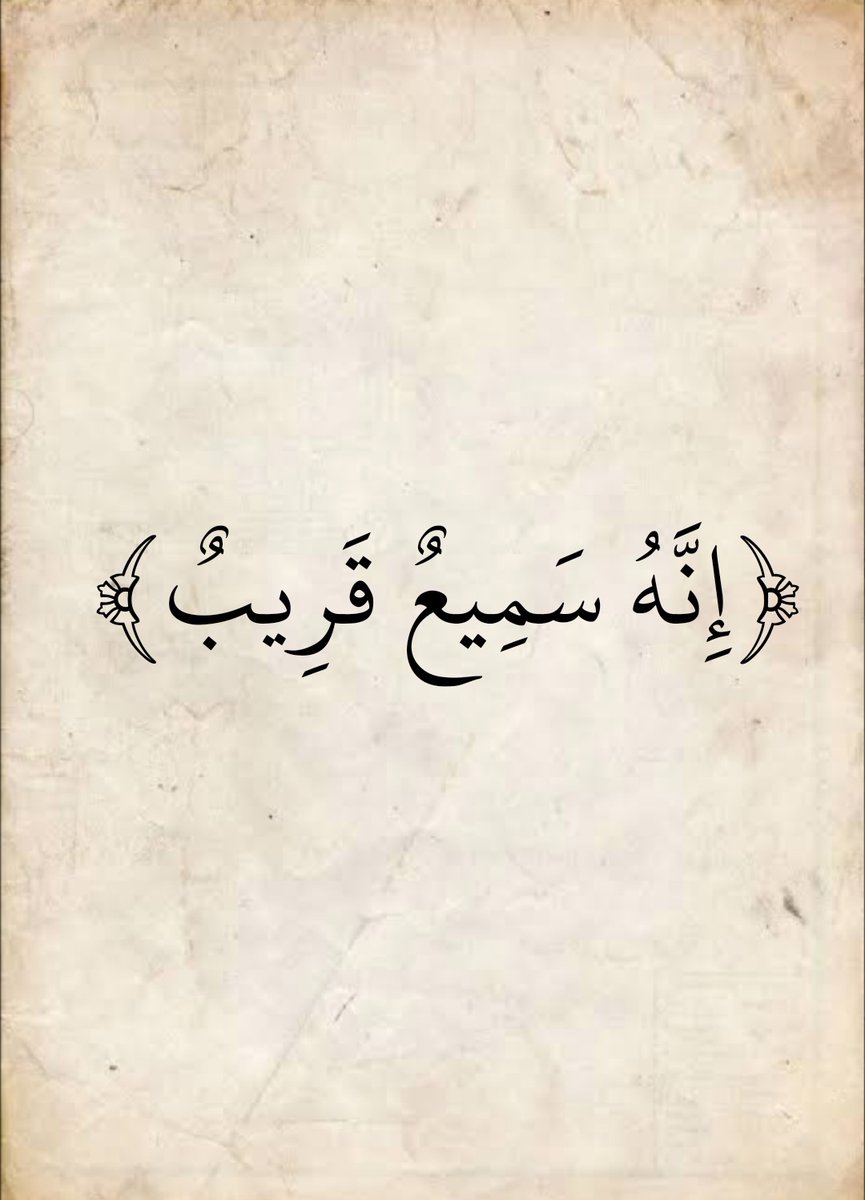 ﴿إِنَّهُ سَمِيعٌ قَرِيبٌ﴾